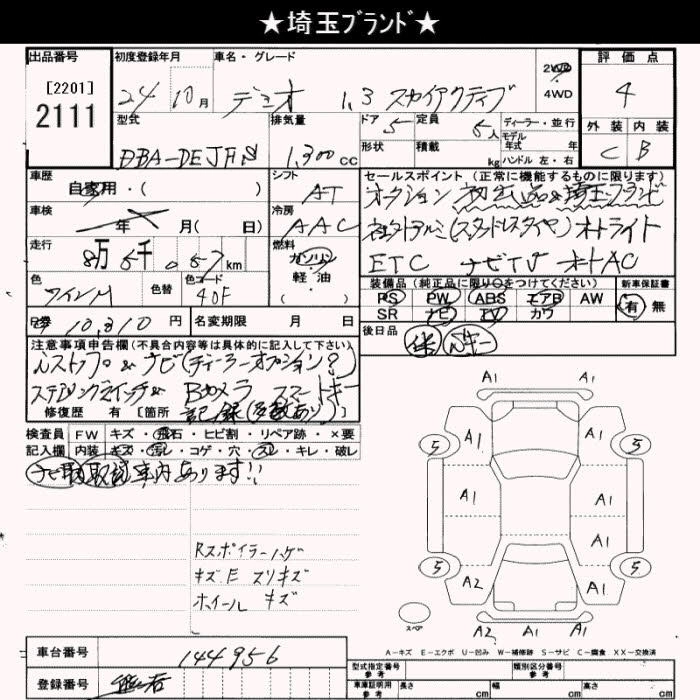 ★埼玉ブランド★
出品番号 初度登録年月 車名・グレード 2WD 評価点
[2201]
2111
24年 10月 デミオ 1.3 スカイアクティブ 4WD 4
型式 排気量 ドア 定員 ディーラー・並行 外装 内装
DBA-DEJFS 1,300cc 5 5人 モデル年式 年 C B
形状 積載 kg ハンドル 左・右
車歴 シフト セールスポイント(正常に機能するものに限ります)
自家用・( ) AT オークション初出品&埼玉ブランド
車検 冷房
年 月( 日) AAC 社外アルミ(スタッドレスタイヤ) オートライト
走行 燃料
8万5千057km ガソリン ETC ナビTV オートAC
軽油
色 色替 色コード ( ) 装備品(純正品に限り○をつけてください) 新車保証書
ワインM 40F PS PW ABS エアB AW 有 無
SR ナビ TV カワ
R券 10,310円 名変期限 月 日 後日品
注意事項申告欄(不具合内容等は具体的に記入して下さい)
iストップ & ナビ(ディーラーオプション?)
ステアリングスイッチ& Bカメラ スマートキー
修復歴 有 [箇所 記録(多数あり)]
検査員 FW キズ・飛石・ヒビ割・リペア跡・×要
記入欄 内装 キズ・汚レ・コゲ・穴・スレ・キレ・破レ
ナビ取説車内あります!!
Rスポイラーハゲ
キズE スリキズ
ホイール キズ
A1
A1
5 A1 A1 5
A1 A1
A1
5 A2 A1 5
スペア A2 A1 A1
A－キズ E－エクボ U－凹み W－補修跡 S－サビ C－腐食 XX－交換済
車台番号 144956 型式指定番号 参考 類別区分番号 参考
登録番号 車庫証明用 参考 長さ cm 幅 cm 高さ cm